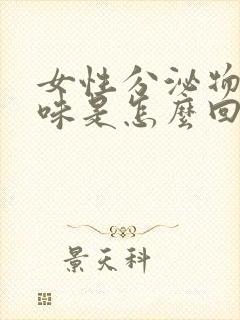 女性分泌物
味是怎麼回
景天科